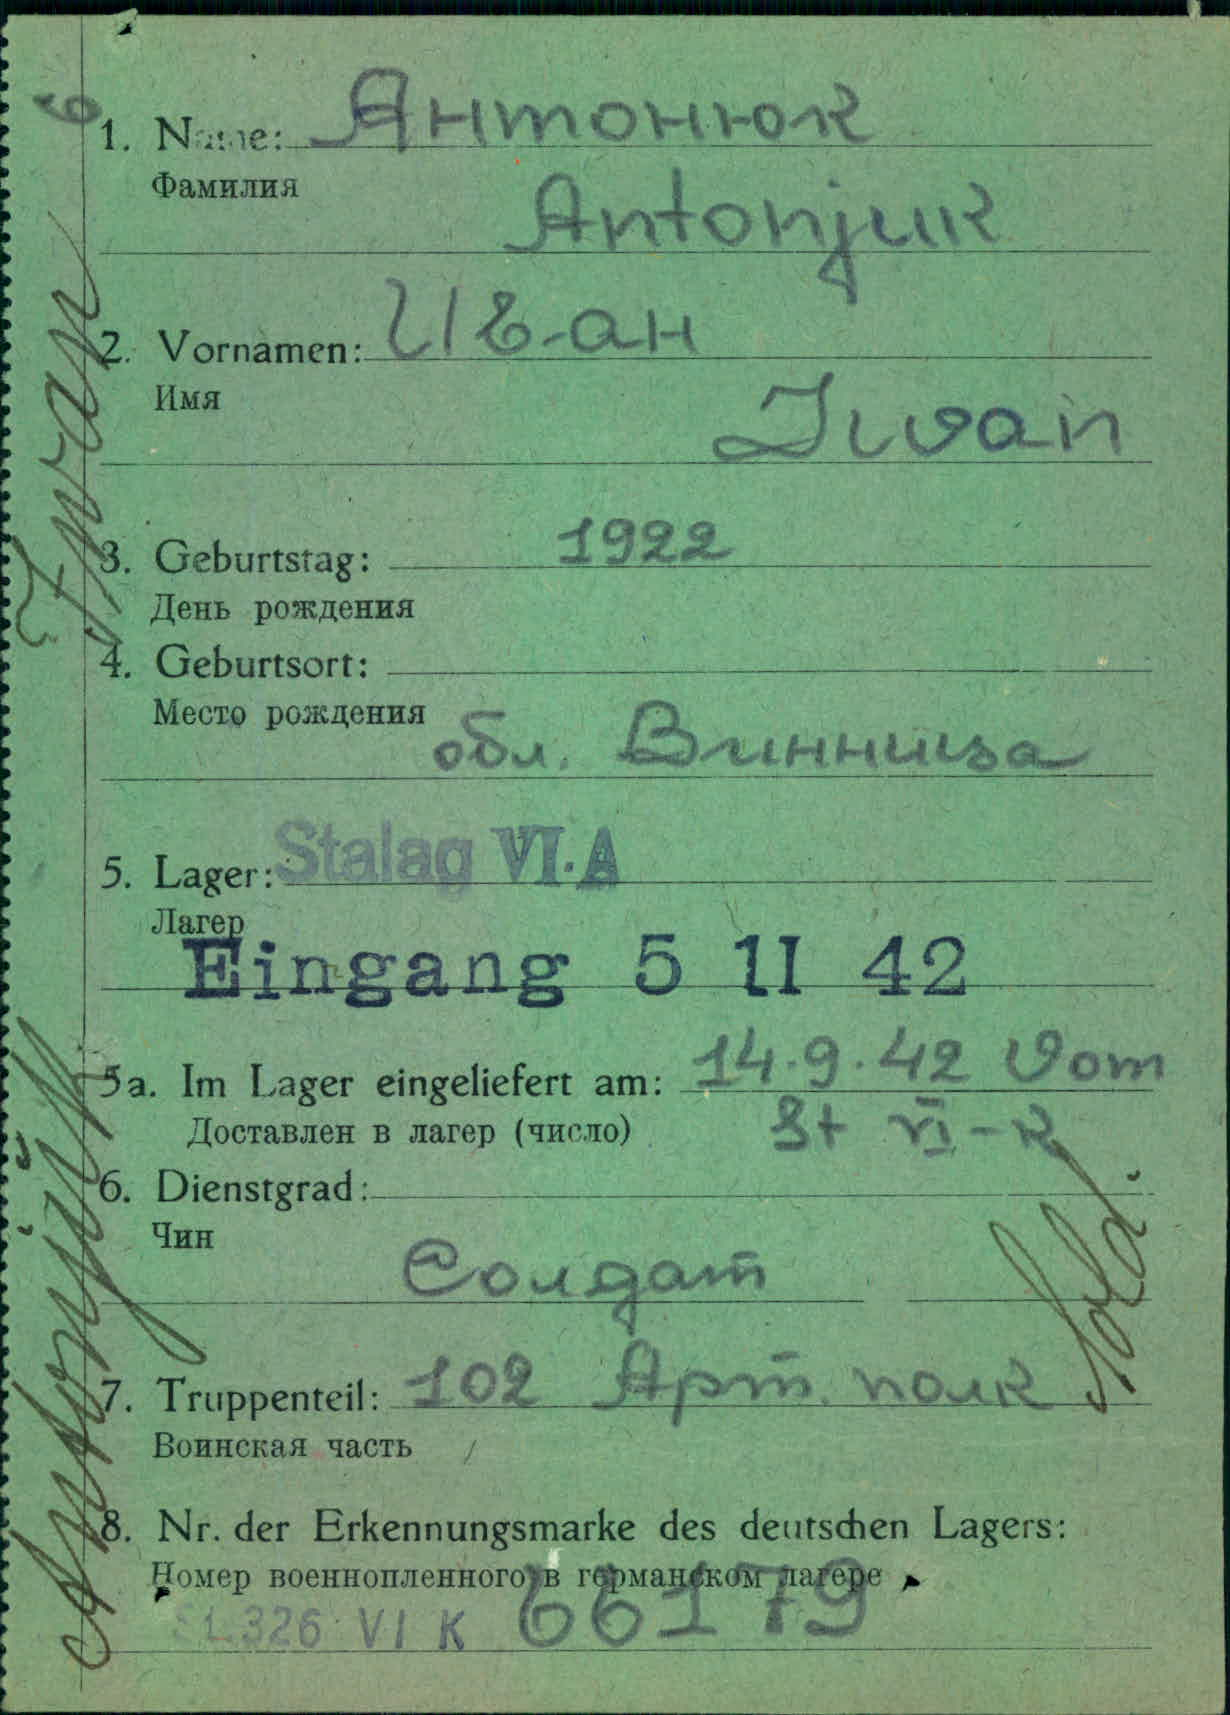 6
1. Name: Антонюк
Фамилия
Antonjuk
2. Vornamen: Иван
Имя
Iwan
3. Geburtstag: 1922
День рождения
4. Geburtsort:
Место рождения
обл. Винница
5. Lager: Stalag VI.A
Лагер
Eingang 5 11 42
5a. Im Lager eingeliefert am: 14.9.42 Vom
Доставлен в лагер (число) St VI-K
6. Dienstgrad:
Чин
Солдат
Sold.
7. Truppenteil: 102 Арт. полк
Воинская часть
8. Nr. der Erkennungsmarke des deutschen Lagers:
Номер военнопленного в германском лагере
326 VI K 66179
Antonjuk Iwan